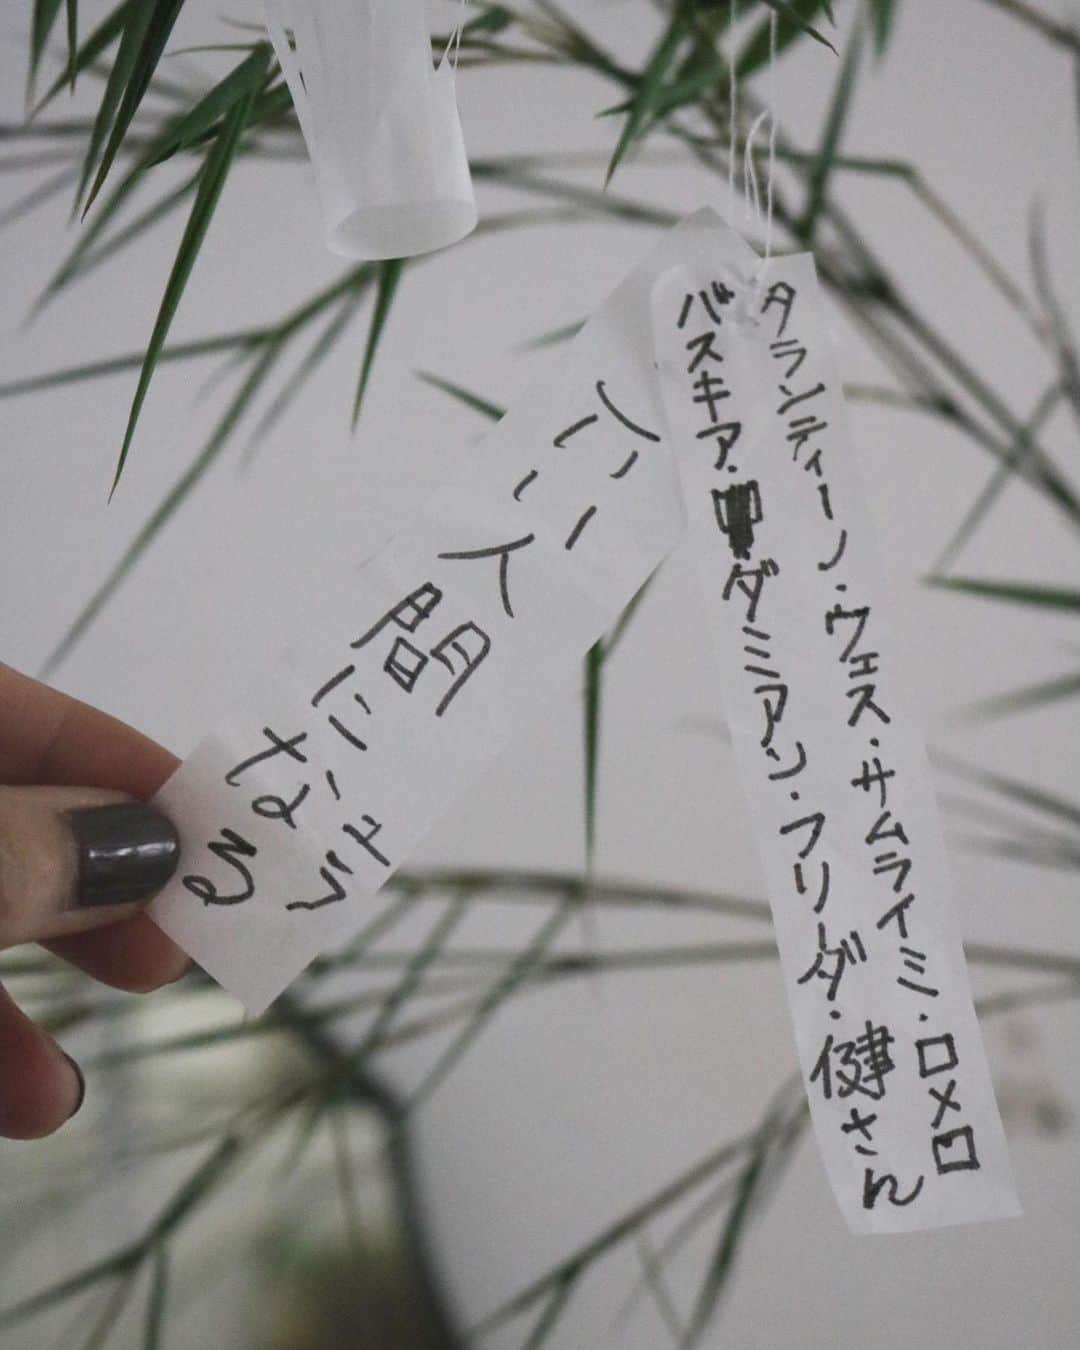 タランティーノ・ウェス・サムライミ・ロメロ
バスキア・ダミアン・フリーダ・健さん
い人間になる